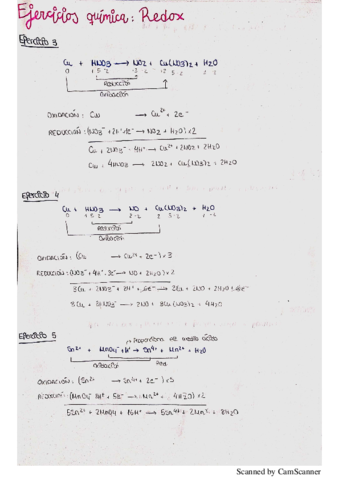 Ejercicios química: Redox
Ejercicio 3
Cu + HNO3 → NO2 + Cu(NO3)2 + H2O
Reducción
Oxidación
OXIDACIÓN: Cu → Cu2+ + 2e-
REDUCCIÓN: (NO3- + 2H+ + 1e- → NO2 + H2O) x2
Cu + 2NO3- + 4H+ → Cu2+ + 2NO2 + 2H2O
Cu + 4HNO3 → 2NO2 + Cu(NO3)2 + 2H2O
Ejercicio 4
Cu + HNO3 → NO + Cu(NO3)2 + H2O
Reducción
Oxidación
OXIDACIÓN: (Cu → Cu2+ + 2e-) x3
REDUCCIÓN: (NO3- + 4H+ + 3e- → NO + 2H2O) x2
3Cu + 2NO3- + 8H+ + 6e- → 3Cu + 2NO + 4H2O + 6e-
3Cu + 8HNO3 → 2NO + 3Cu(NO3)2 + 4H2O
Ejercicio 5
Proporciona medio ácido
Sn2+ + MnO4- + H+ → Sn4+ + Mn2+ + H2O
Oxidación
Red.
OXIDACIÓN: (Sn2+ → Sn4+ + 2e-) x5
REDUCCIÓN: (MnO4- + 8H+ + 5e- → Mn2+ + 4H2O) x2
5Sn2+ + 2MnO4 + 16H+ → 5Sn4+ + 2Mn2+ + 8H2O
Scanned by CamScanner